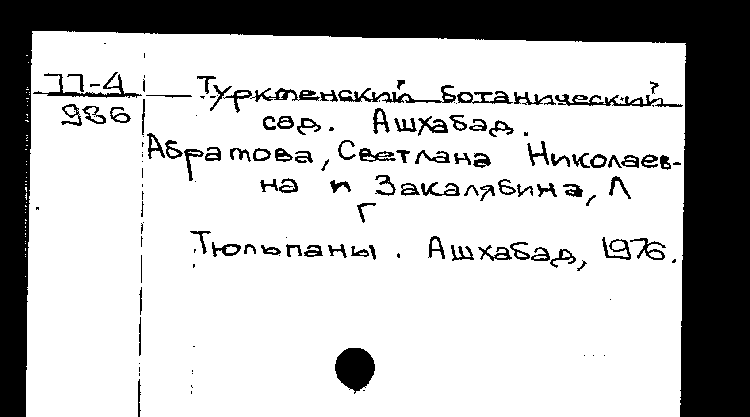 77-4
986
Туркменский ботанический
сад. Ашхабад.
Абрамова, Светлана Николаев-
на и Закалябина, Л
Г
Тюльпаны. Ашхабад, 1976.